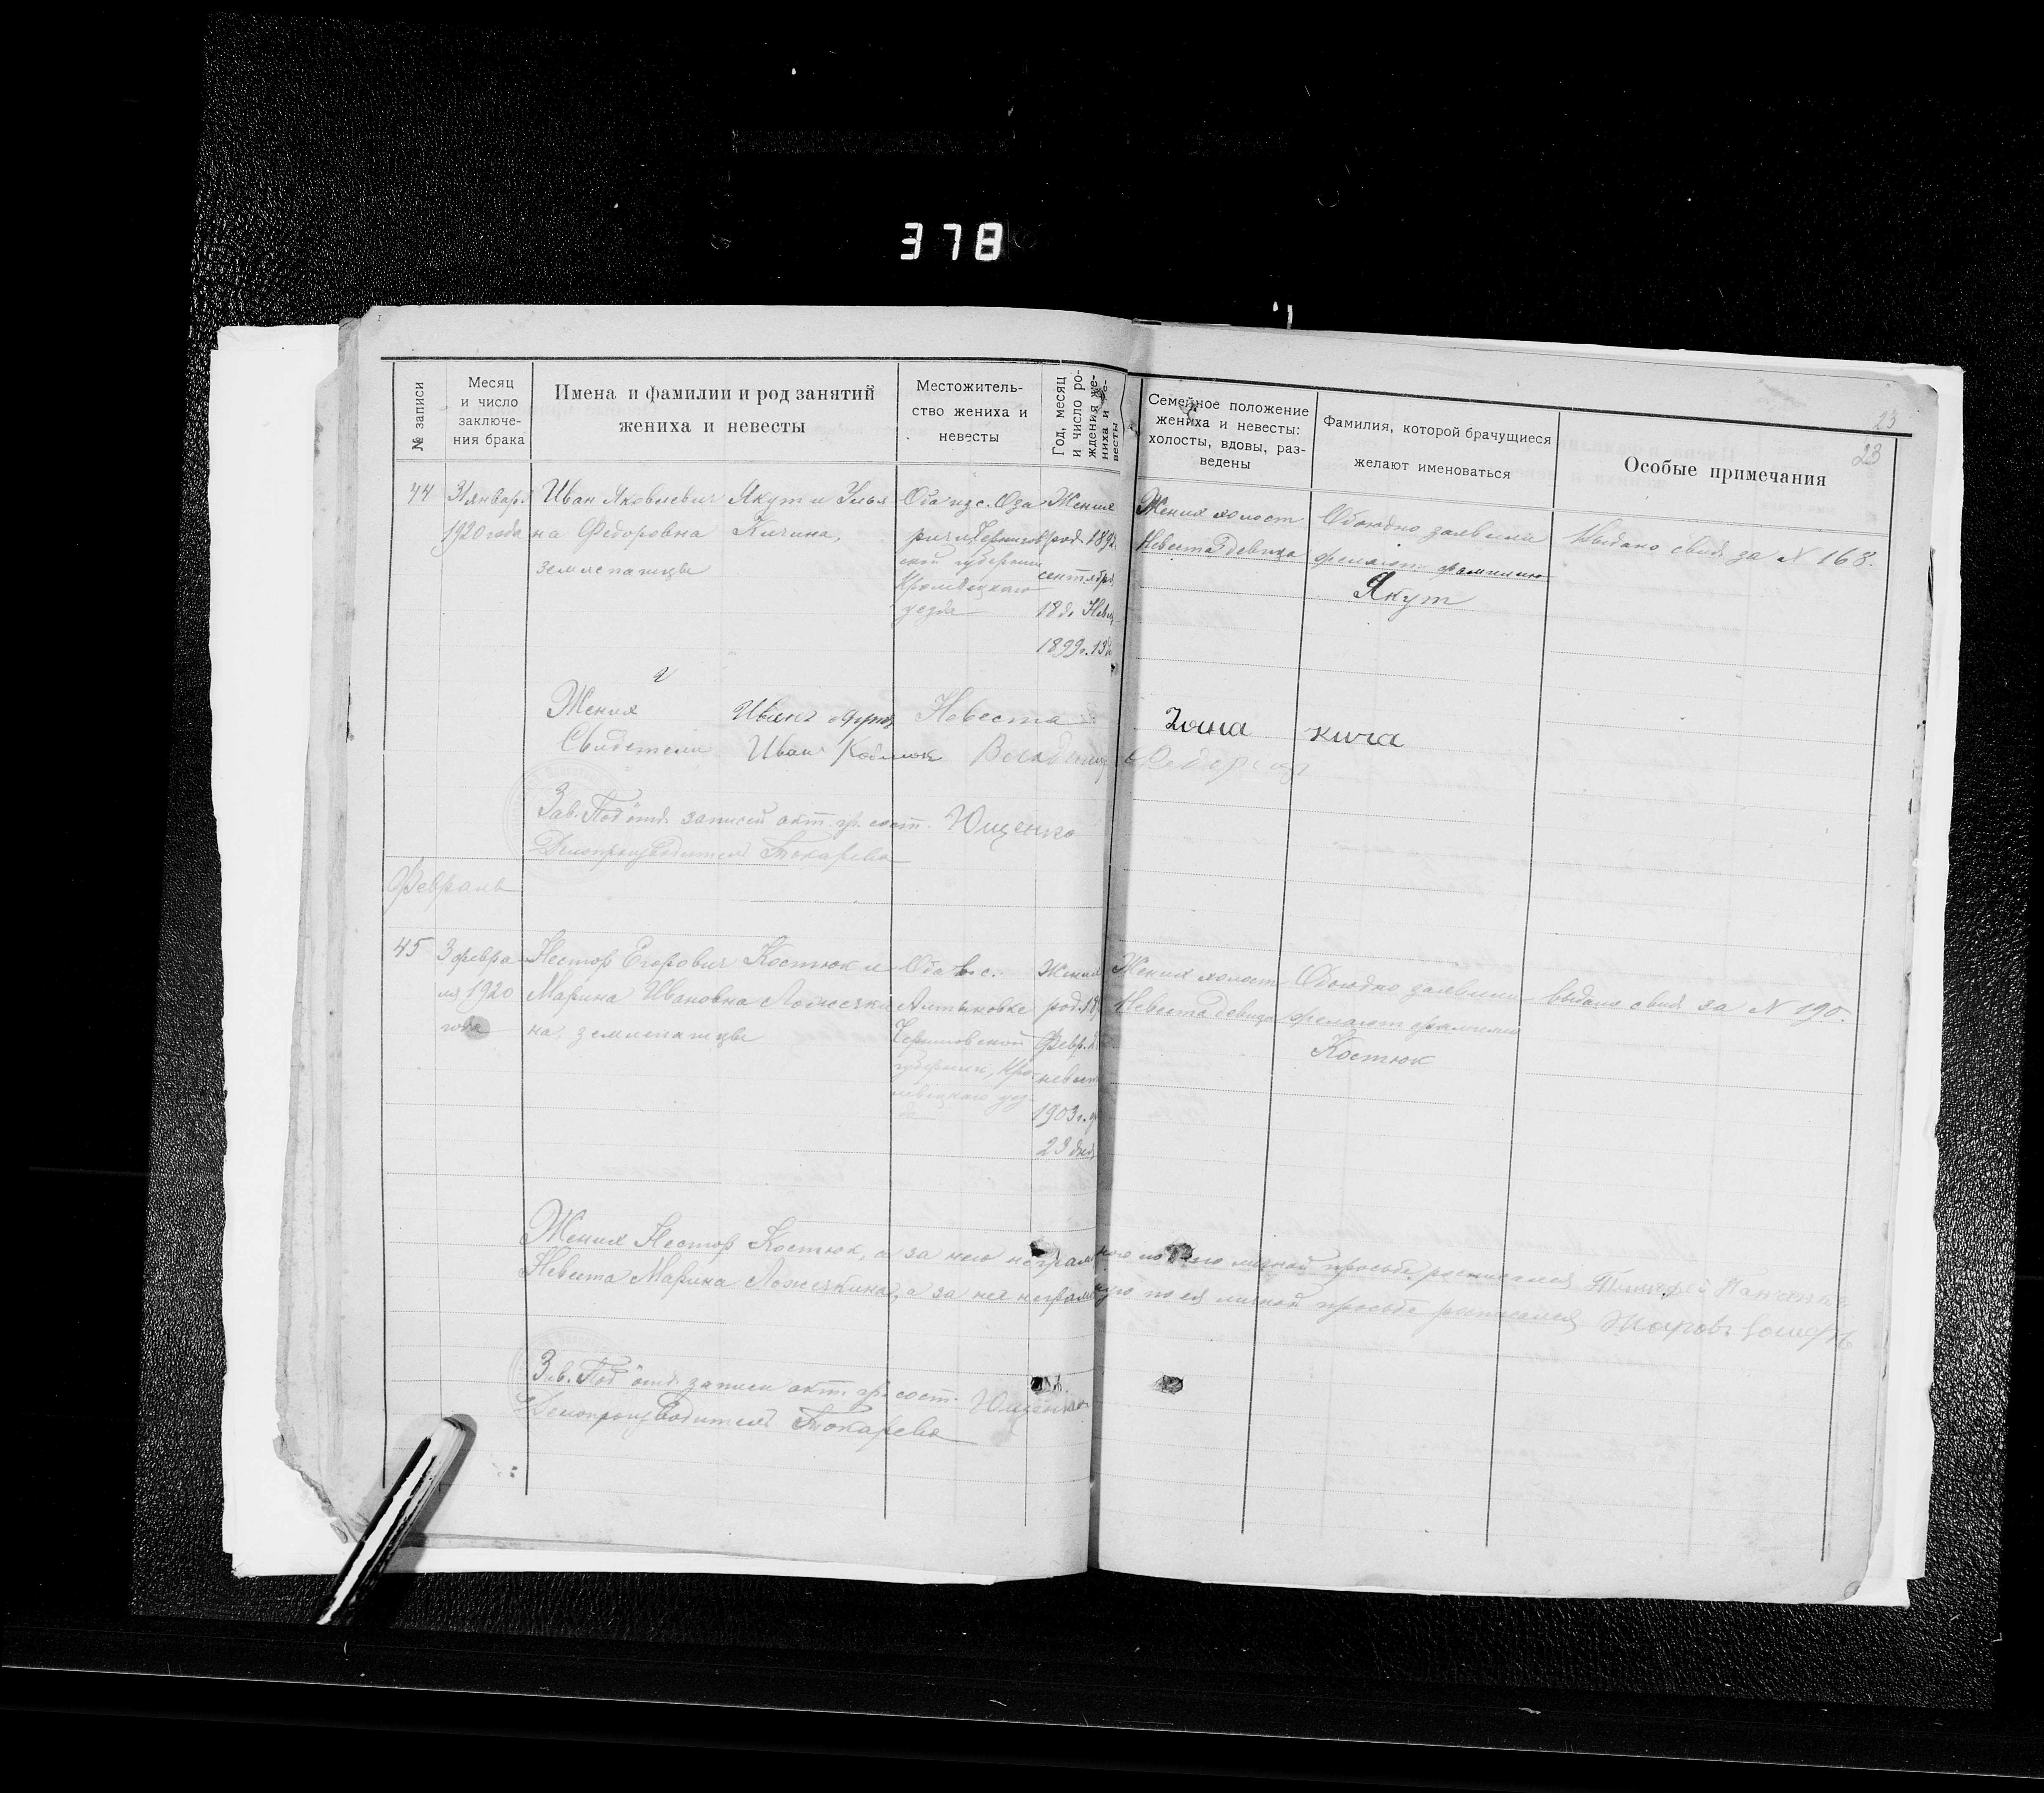 378
23
23
№ записи
Месяц и число заключе-ния брака
Имена и фамилии и род занятий жениха и невесты
Местожитель-ство жениха и невесты
Год, месяц и число ро-ждения же-ниха и не-весты
Семейное положение жениха и невесты: холосты, вдовы, раз-ведены
Фамилия, которой брачущиеся желают именоваться
Особые примечания
44
31 январ.
1920 года
Иван Яковлевич Якут и Улья
на Федоровна Кичина,
землепашцы
Оба из с. Оза
ричи, Чернигов
ской губернии
Кролевецкаго
уезда
Жених
род. 189
сентября
18 д.
1899 г. 13
Жених холост
Невеста девица
Обоюдно заявили
фамилию
Якут
Выдано свид. за N 168.
Жених
Невеста
кича
Свидетели Иван
Зав. Под'отд. записей акт. гр. сост. Ющенко
Делопроизводитель Токарева
Февраль
45
3 февра
ля 1920
года
Нестор Егорович Костюк и
Марина Ивановна Ложечки
на, землепашцы
Оба в с.
Алтыновке
Черниговской
губернии, Кро-
левецкаго уез-
Жених
род. 18
Февр.
невест
1903 г.
23 дня
Жених холост
Невеста девица
Обоюдно заявили
желают фамилию
Костюк
Выдано свид. за N 190.
Жених Нестор Костюк, а за него неграмотнаго по его личной просьбе росписался
Невеста Марина Ложечкина, а за нея неграмотную по ея личной просьбе росписался
Зав. Под'отд. записи акт. гр. сост. Ющенко
Делопроизводитель Токарева